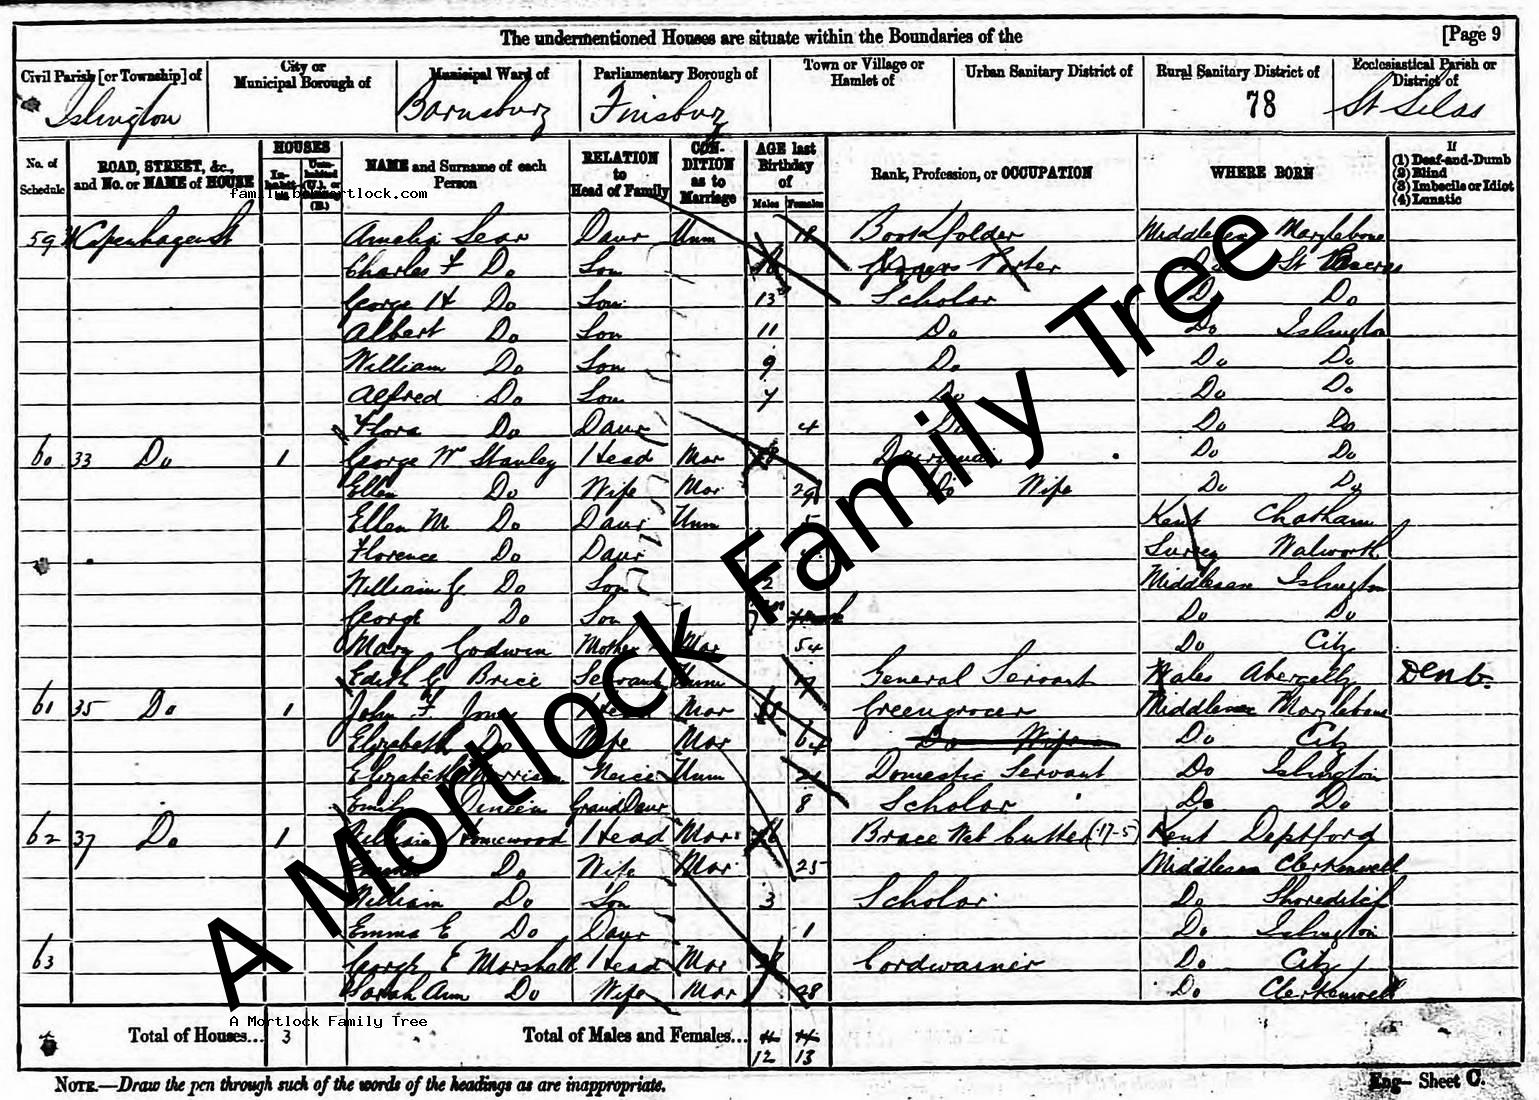 The undermentioned Houses are situate within the Boundaries of the [Page 9
Civil Parish [or Township] of City or Municipal Borough of Municipal Ward of Parliamentary Borough of Town or Village or Hamlet of Urban Sanitary District of Rural Sanitary District of Ecclesiastical Parish or District of
Islington Barnsbury Finsbury 78 St Silas
No. of Schedule ROAD, STREET, &c., and No. or NAME of HOUSE HOUSES Inhabited Uninhabited (U.), or Building (B.) NAME and Surname of each Person RELATION to Head of Family CONDITION as to Marriage AGE last Birthday of Males Females Rank, Profession, or OCCUPATION WHERE BORN If (1) Deaf-and-Dumb (2) Blind (3) Imbecile or Idiot (4) Lunatic
family.bbmortlock.com
59 Copenhagen St Amelia Sear Daur Unm 18 Book folder Middlesex Marylebone
Charles F Do Son Porter Do St Pancras
George H Do Son 13 Scholar Do Do
Albert Do Son 11 Do Do Islington
William Do Son 9 Do Do Do
Alfred Do Son 7 Do Do Do
Flora Do Daur 4 Do Do Do
60 33 Do 1 George W Stanley Head Mar Do Do
Ellen Do Wife Mar 29 Do Wife Do Do
Ellen M Do Daur Unm 5 Kent Chatham
Florence Do Daur Surrey Walworth
William G Do Son 2 Middlesex Islington
George Do Son Do Do
Mary Godwin Mother Mar 54 Do City
Edith G Brice Servant Unm 17 General Servant Wales Abergelly Denb.
61 35 Do 1 John F Jones Head Mar Greengrocer Middlesex Marylebone
Elizabeth Do Wife Mar 64 Do Wife Do City
Elizabeth Morrison Neice Unm 21 Domestic Servant Do Islington
Emily GrandDaur 8 Scholar Do Do
62 37 Do 1 William Homewood Head Mar 26 Brace Web Cutter (17-5) Kent Deptford
Emma Do Wife Mar 25 Middlesex Clerkenwell
William Do Son 3 Scholar Do Shoreditch
Emma E Do Daur 1 Do Islington
63 George E Marshall Head Mar Cordwainer Do City
Sarah Ann Do Wife Mar 28 Do Clerkenwell
A Mortlock Family Tree
A Mortlock Family Tree
Total of Houses... 3 Total of Males and Females... 11 14
12 13
NOTE.—Draw the pen through such of the words of the headings as are inappropriate. Eng— Sheet C.